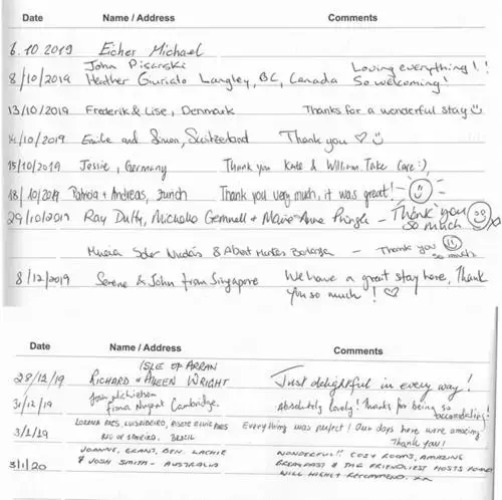 Date Name / Address Comments
6.10 2019 Eicher Michael
John Pisarski Loving everything!!
8/10/2019 Heather Guriato Langley, BC, Canada So welcoming!
13/10/2019 Frederik & Lise, Denmark Thanks for a wonderful stay
14/10/2019 Emilie and Simon, Switzerland Thank you
15/10/2019 Jessie, Germany Thank you Kate & William Take Care :)
18/10/2019 Patricia + Andreas, Zurich Thank you very much, it was great!
29/10/2019 Ray Duffy, Nicholle Gemmell + Marie-Anne Pringle - Thank you
so much xx
& Albert - Thank you
so much
8/12/2019 Serene & John from Singapore We have a great stay here, Thank
you so much!
Date Name / Address Comments
ISLE OF ARRAN
28/12/19 RICHARD & AILEEN WRIGHT Just delightful in every way!
31/12/19 Cambridge. Absolutely lovely! Thanks for being so
accomodating!
3/1/19 Everything was perfect! Our days here were amazing
BRAZIL Thank you!
JOANNE, GRANT, BEN, LACHIE WONDERFUL!! COZY ROOMS, AMAZING
3/1/20 & JOSH SMITH - AUSTRALIA BREAKFAST & THE FRIENDLIEST HOSTS
WILL HIGHLY RECOMMEND. XX